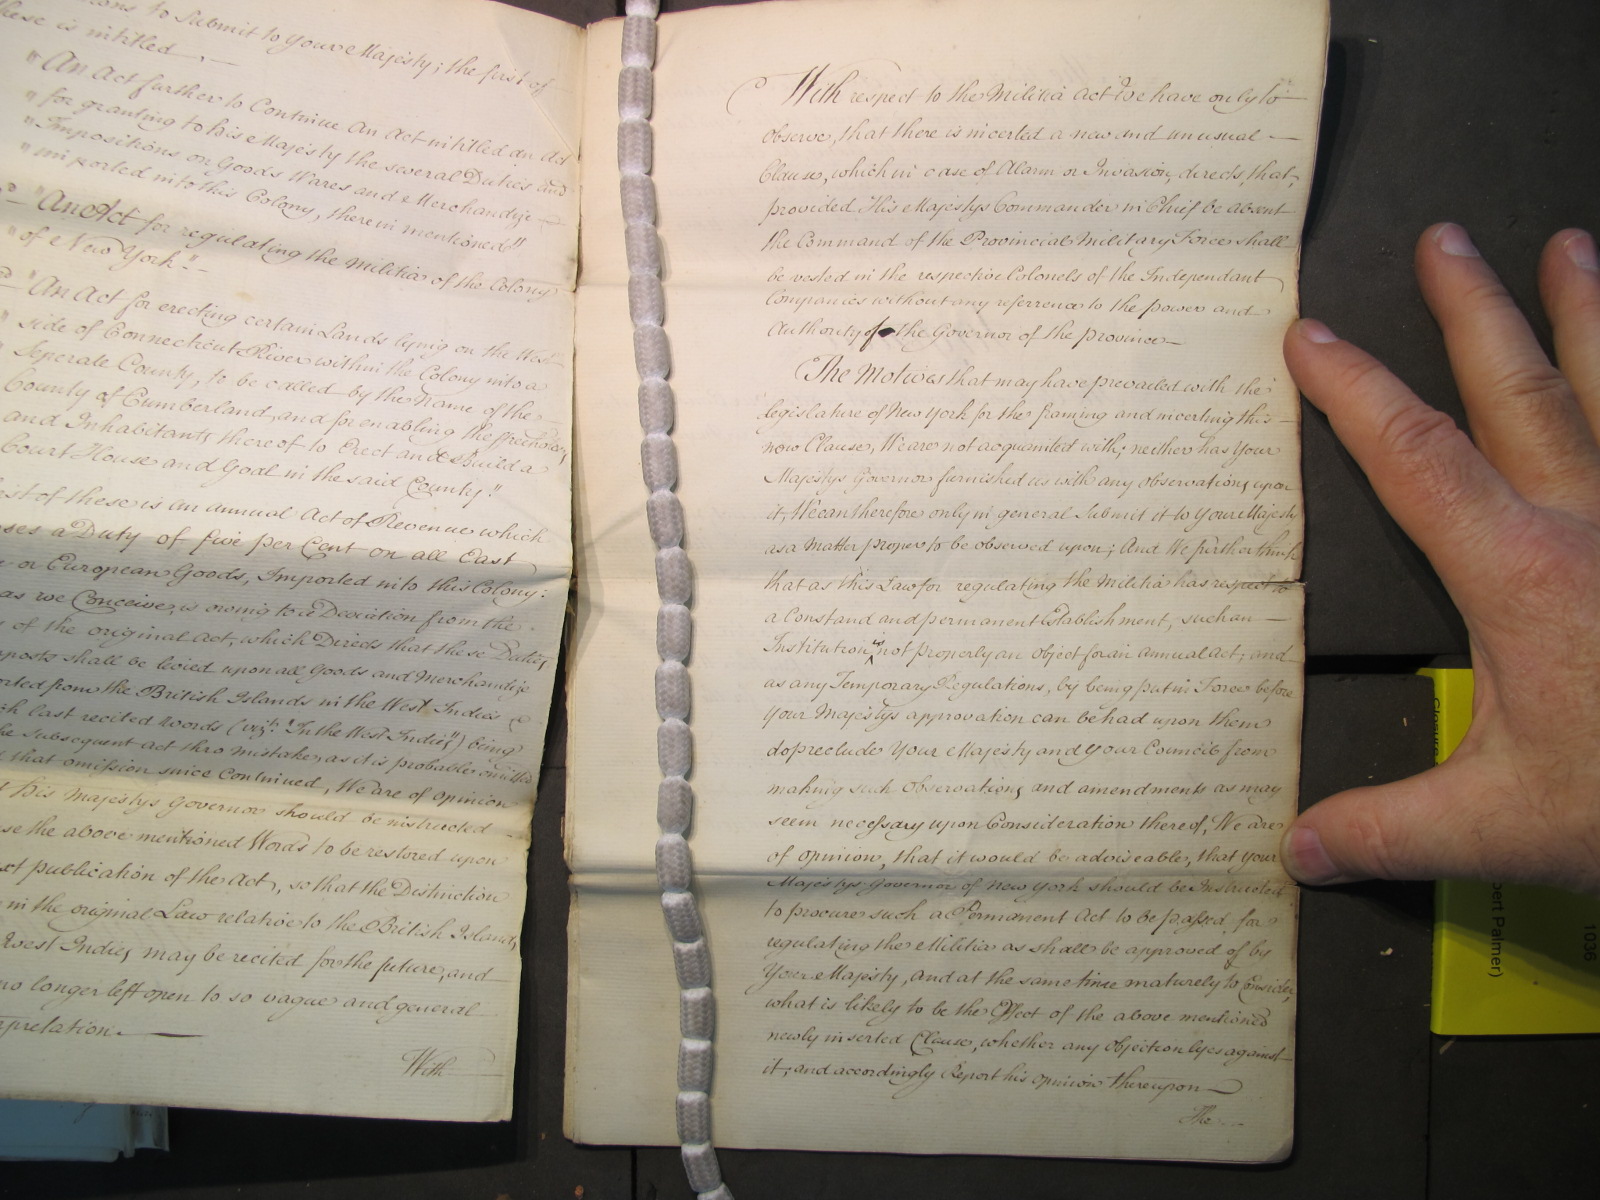 ons to Submit to Your Majesty; the first of
these is intitled.
"An Act further to Continue An Act intitled an Act
"for granting to his Majesty the several Duties and
"Impositions on Goods Wares and Merchandize
"imported into this Colony, therein mentioned"
"An Act for regulating the Militia of the Colony
"of New York."
"An Act for erecting certain Lands lying on the West
"side of Connecticut River within the Colony into a
"Seperate County, to be called by the Name of the
County of Cumberland, and for enabling the freeholders
and Inhabitants thereof to Erect and Build a
Court House and Goal in the said County."
rst of these is an annual Act of Revenue which
ses a Duty of five per Cent on all East
or European Goods, Imported into this Colony:
as we Conceive, is owing to a Deviation from the
of the original Act, which Directs that these Duties
mposts shall be levied upon all Goods and Merchandize
orted from the British Islands in the West Indies
ch last recited words (vizt. "In the West Indies") being
he Subsequent act thro mistake, as it is probable omitted
that omission since Continued, We are of opinion
t his Majestys Governor should be instructed
se the above mentioned Words to be restored upon
xt publication of the Act, so that the Distinction
in the original Law relative to the British Islands
West Indies, may be recited for the future, and
no longer left open to so vague and general
rpretation.
With
With respect to the Militia Act We have only to
observe, that there is incerted a new and unusual
Clause, which in case of Alarm or Invasion, directs, that,
provided His Majestys Commander in Chief be absent
the Command of the Provincial Military Force shall
be vested in the respective Colonels of the Independant
Companies without any referrence to the power and
Authority of the Governor of the province
The Motives that may have prevailed with the
legislature of New York for the framing and incerting this
new Clause, We are not acquainted with; neither has Your
Majestys Governor furnished us with any observations upon
it; We can therefore only in general Submit it to Your Majesty
as a Matter proper to be observed upon; And We further think
that as this Law for regulating the Militia has respect to
a Constand and permanent Establishment, such an
Institution is not properly an object for an annual Act; and
as any Temporary Regulations, by being put in Force before
Your Majestys approvation can be had upon them
do preclude Your Majesty and Your Council from
making such Observations and amendments as may
seem necessary upon Consideration thereof, We are
of opinion, that it would be adviseable, that Your
Majestys Governor of New York should be Instructed
to procure such a Permanent Act to be passed, for
regulating the Militia as shall be approved of by
Your Majesty, and at the same time maturely to Consider,
what is likely to be the Effect of the above mentioned
newly inserted Clause, whether any objection lyes against
it; and accordingly Report his opinion thereupon
The
Closure
bert Palmer)
1036